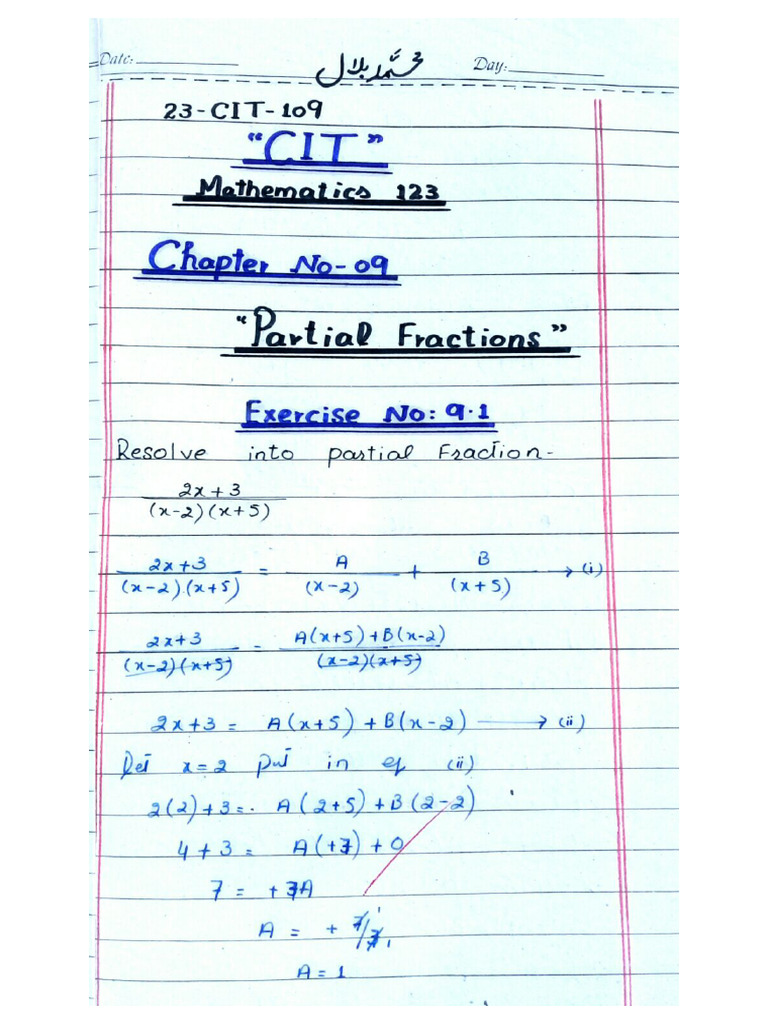 Date: Day:
محمد بلال
23-CIT-109
"CIT"
Mathematics 123
Chapter No-09
"Partial Fractions"
Exercise No: 9.1
Resolve into partial Fraction-
2x+3
(x-2)(x+5)
2x+3 = A + B → (i)
(x-2).(x+5) (x-2) (x+5)
2x+3 = A(x+5)+B(x-2)
(x-2)(x+5) (x-2)(x+5)
2x+3 = A(x+5)+B(x-2) → (ii)
let x=2 put in eq (ii)
2(2)+3=. A(2+5)+B(2-2)
4+3 = A(+7)+0
7 = +7A
A = + 7/7
A=1